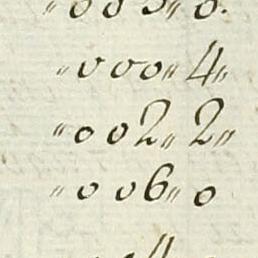 〃000〃4〃
〃002〃2〃
〃006〃0